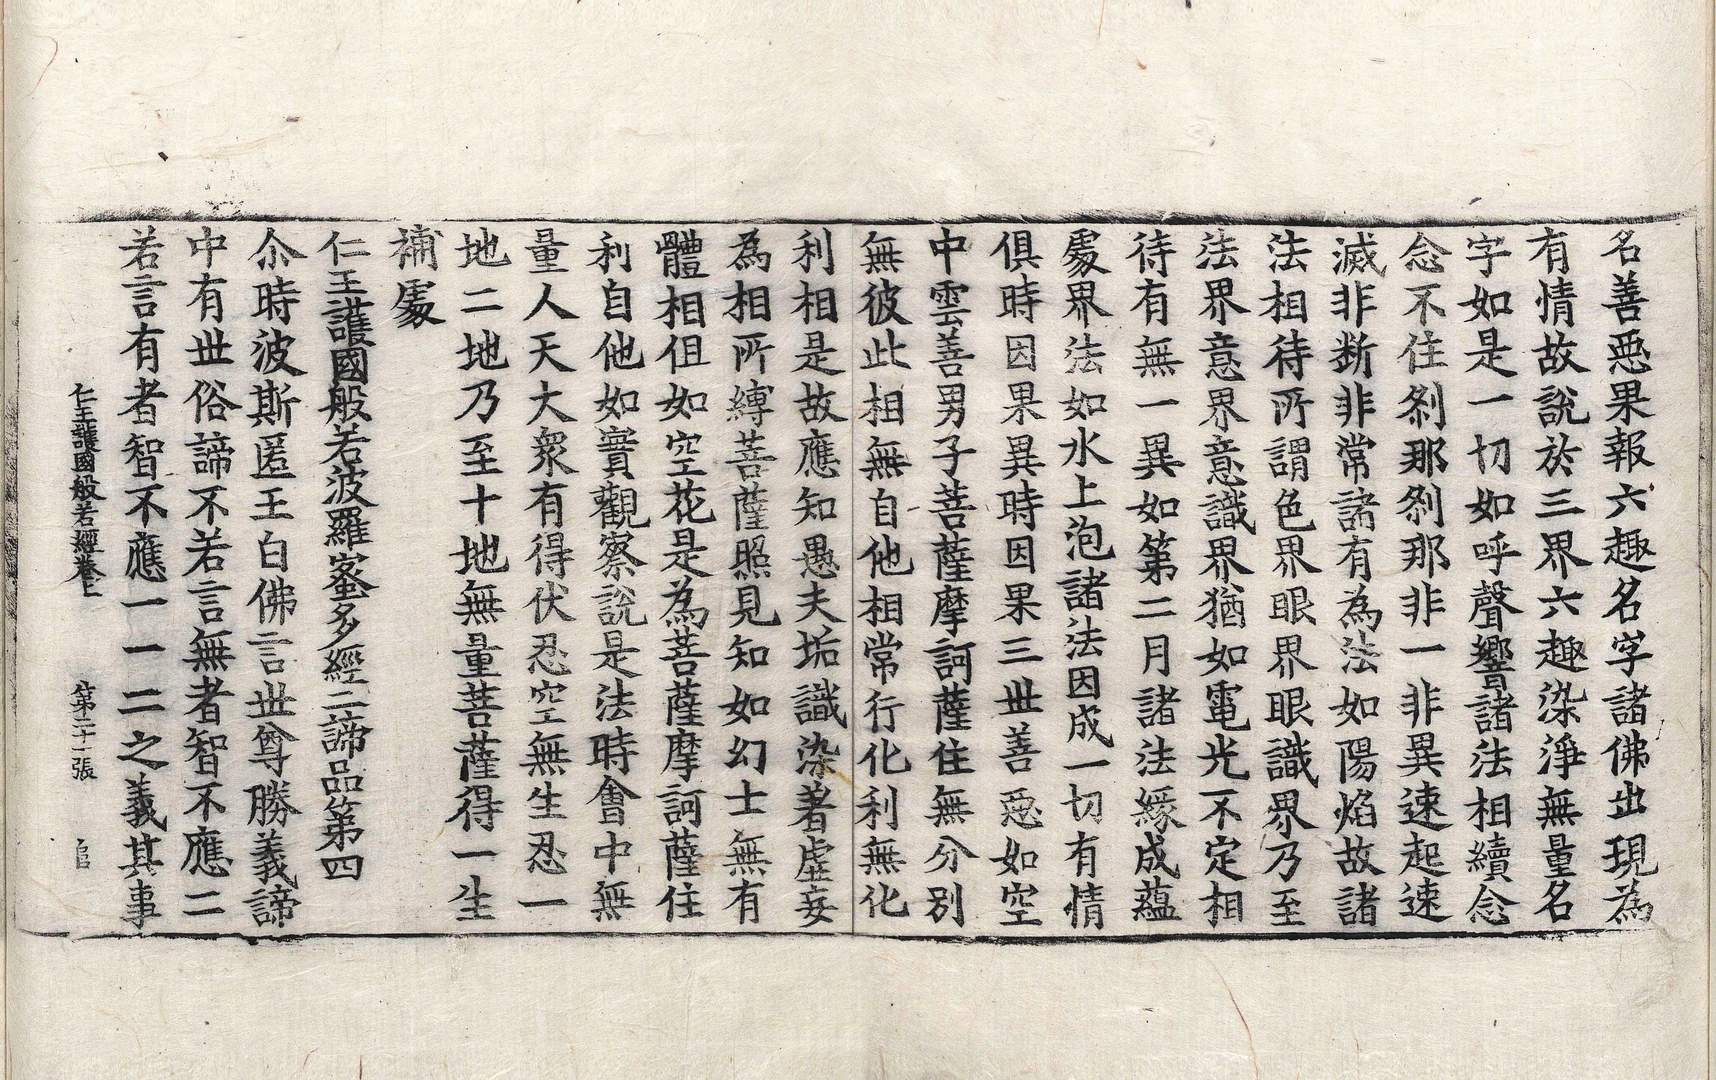 名善惡果報六趣名字諸佛出現為
有情故說於三界六趣染淨無量名
字如是一切如呼聲響諸法相續念
念不住剎那剎那非一非異速起速
滅非断非常諸有為法如陽焰故諸
法相待所謂色界眼界眼識界乃至
法界意界意識界猶如電光不定相
待有無一異如第二月諸法緣成蘊
處界法如水上泡諸法因成一切有情
俱時因果異時因果三世善惡如空
中雲善男子菩薩摩訶薩住無分別
無彼此相無自他相常行化利無化
利相是故應知愚夫垢識染著虛妄
為相所縛菩薩照見知如幻士無有
體相但如空花是為菩薩摩訶薩住
利自他如實觀察說是法時會中無
量人天大衆有得伏忍空無生忍一
地二地乃至十地無量菩薩得一生
補處
仁王護國般若波羅蜜多經二諦品第四
尒時波斯匿王白佛言世尊勝義諦
中有世俗諦不若言無者智不應二
若言有者智不應一一二之義其事
仁王護國般若經卷上 第二十一張